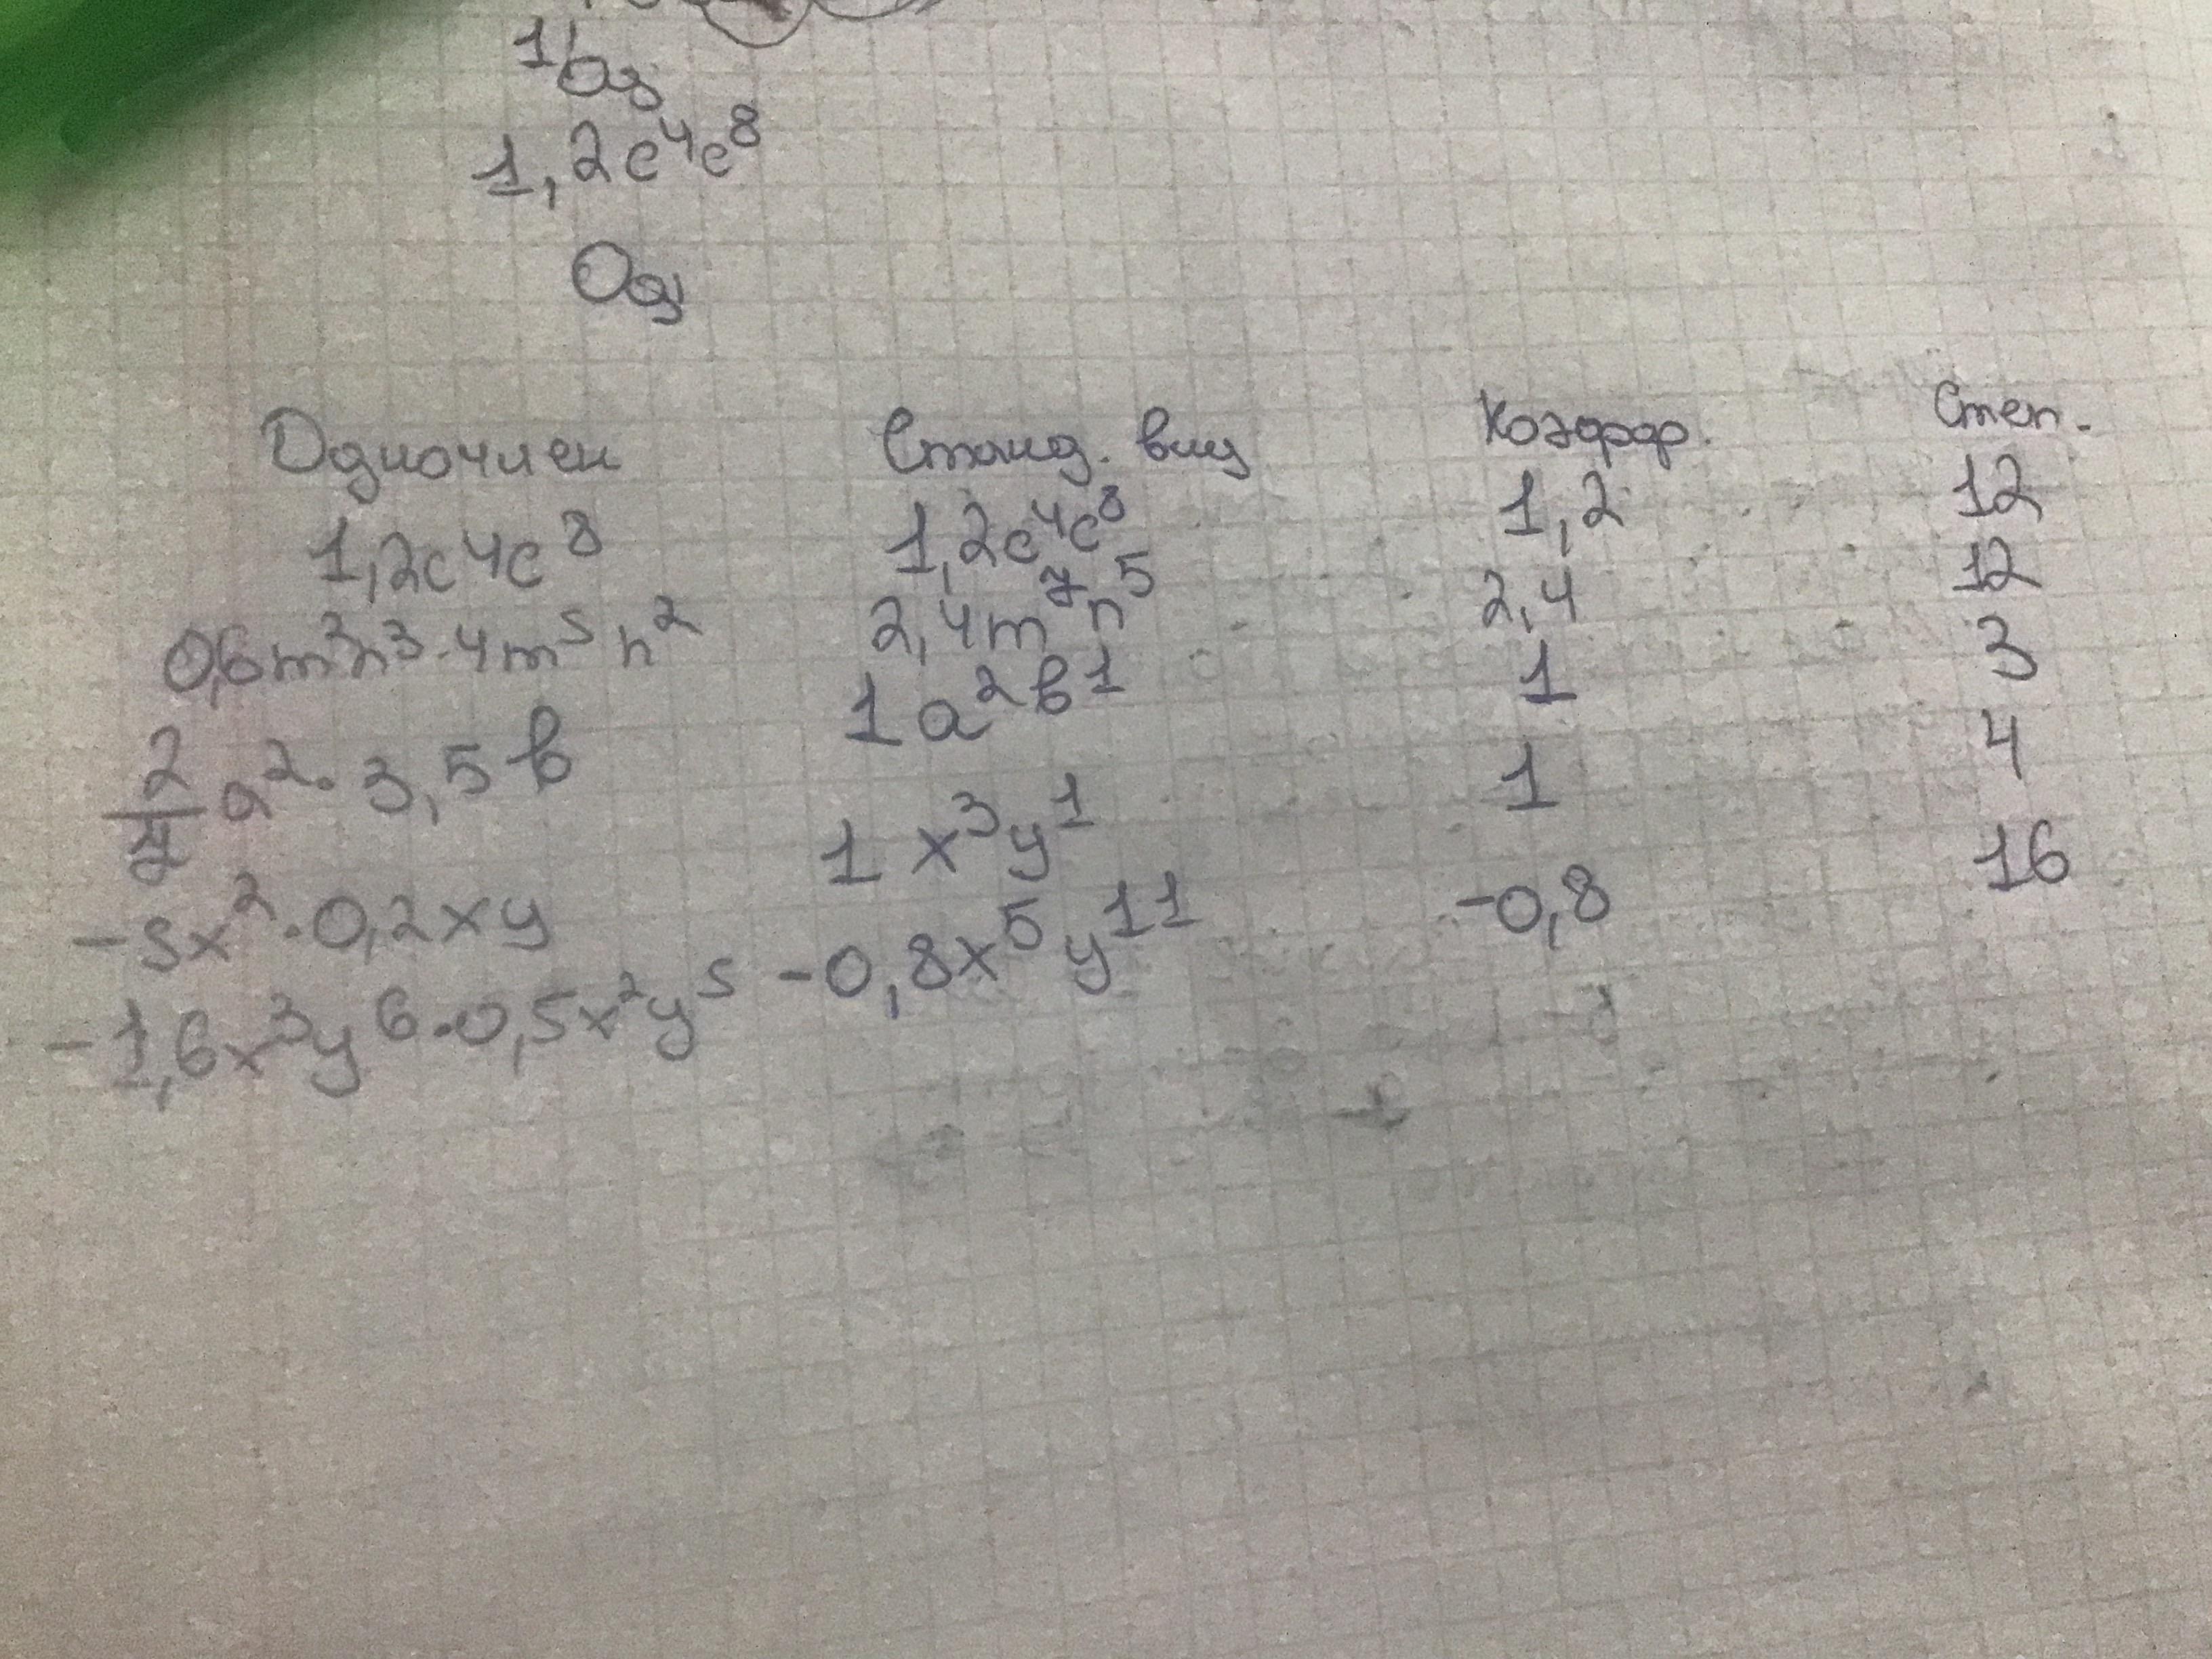 1)
1,2c⁴c⁸
Одночлен Станд. вид Коэфф. Степ.
1,2c⁴c⁸ 1,2c⁴c⁸ 1,2 12
0,6m²n³·4m⁵n² 2,4m⁷n⁵ 2,4 12
2/7 a²·3,5b 1a²b¹ 1 3
-5x²·0,2xy 1x³y¹ 1 4
-1,6x³y⁶·0,5x²y⁵ -0,8x⁵y¹¹ -0,8 16